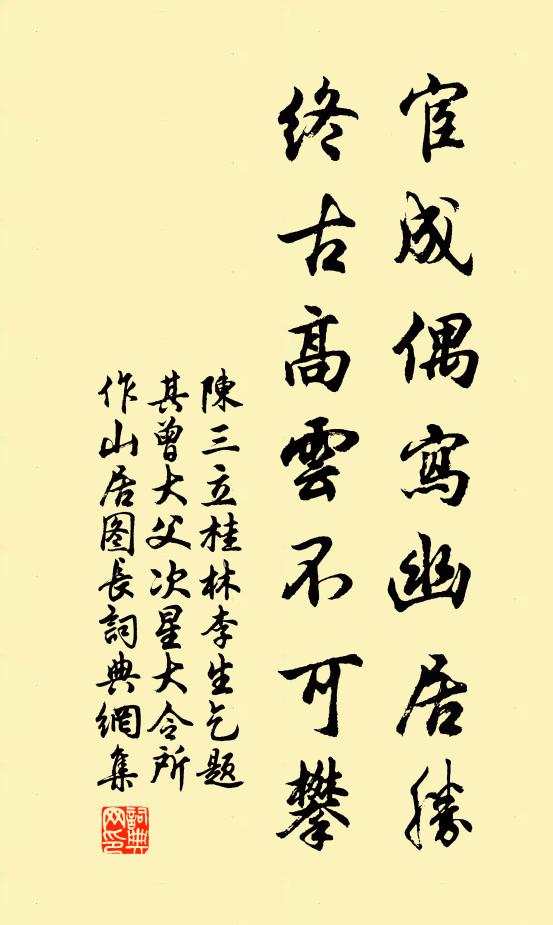 宦成偶寫幽居勝
終古高雲不可攀
陳三立桂林李生乞題
其曾大父次星大令所
作山居图長詞典網集
詞典網印